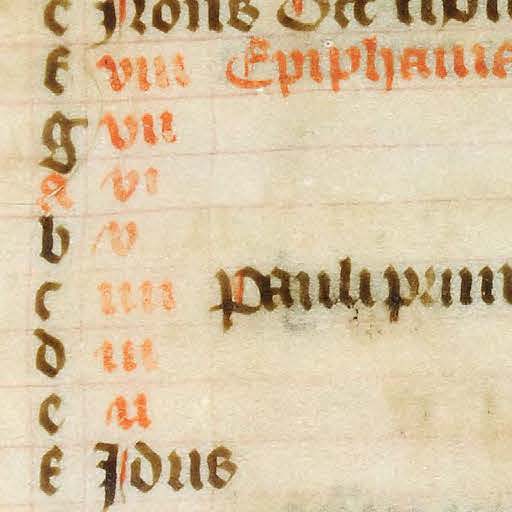 e Nonis
f viii Epiphanie
g vii
a vi
b v
c iiii Pauli primi
d iii
e ii
f Idus